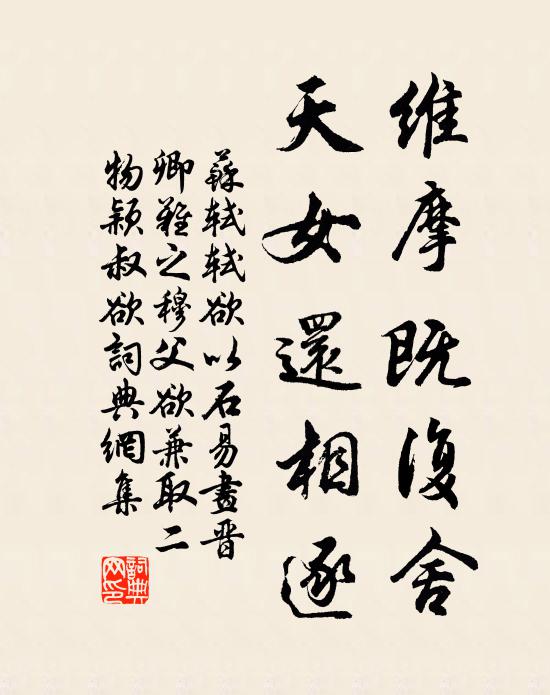 維摩既復舍
天女還相逐
蘇軾軾欲以石易畫晋
卿難之穆父欲兼取二
物穎叔欲詞典網集
詞典
网印